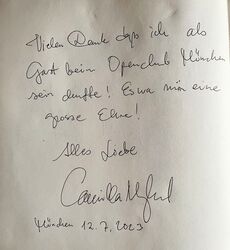 Vielen Dank dass ich als
Gast beim Openclub München
sein durfte! Es war mir eine
grosse Ehre!
Alles Liebe
Camilla
München 12.7.2023